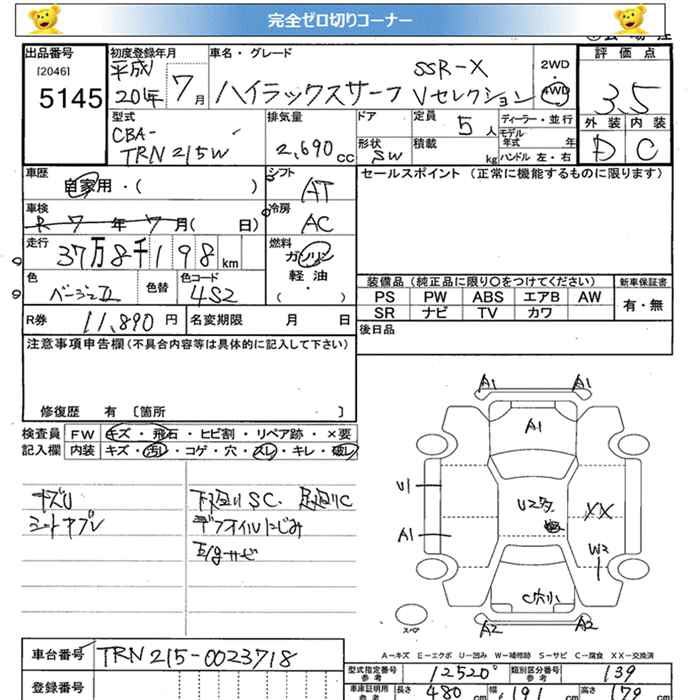 完全ゼロ切りコーナー
出品番号
[2046]
5145
初度登録年月
平成
20年 7月
車名・グレード
SSR-X
ハイラックスサーフ Vセレクション
2WD
4WD
評価点
3.5
外装 内装
D C
型式
CBA-
TRN 215W
排気量
2,690 CC
ドア
形状
SW
定員
5 人
積載 kg
ディーラー・並行
モデル
年式 年
ハンドル 左・右
車歴
自家用・( )
シフト
AT
車検
R 7年 7月( 日)
冷房
AC
走行
37万8千198 km
燃料
ガソリン
軽油
( ・ )
色
ベージュII
色替
色コード
4S2
R券
11,890 円
名変期限 月 日
セールスポイント (正常に機能するものに限ります)
装備品 (純正品に限り○をつけてください)
新車保証書
PS PW ABS エアB AW
SR ナビ TV カワ
有・無
後日品
注意事項申告欄(不具合内容等は具体的に記入して下さい)
修復歴 有 〔箇所 〕
検査員
記入欄
FW キズ・飛石・ヒビ割・リペア跡・×要
内装 キズ・汚れ・コゲ・穴・スレ・キレ・破レ
キズU
シートヤブレ
下廻りSC. 足廻りC
デフオイルにじみ
E/gサビ
A1 A1
A1
U1
A1
U2
XX
W2
C穴小
A2 A2
スペア
A-キズ E-エクボ U-凹み W-補修跡 S-サビ C-腐食 XX-交換済
車台番号
TRN215-0023718
登録番号
型式指定番号
参考
12520
類別区分番号
参考
139
車庫証明用
参考
長さ 480 cm 幅 191 cm 高さ 179 cm